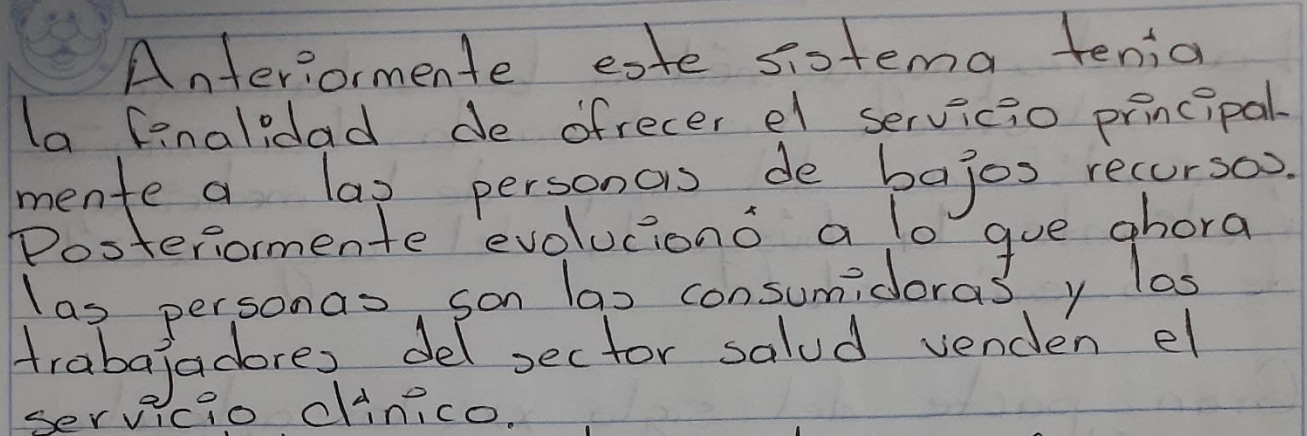 Anteriormente este sistema tenía
la finalidad de ofrecer el servicio principal-
mente a las personas de bajos recursos.
Posteriormente evolucionó a lo que ahora
las personas son las consumidoras y los
trabajadores del sector salud venden el
servicio clínico.